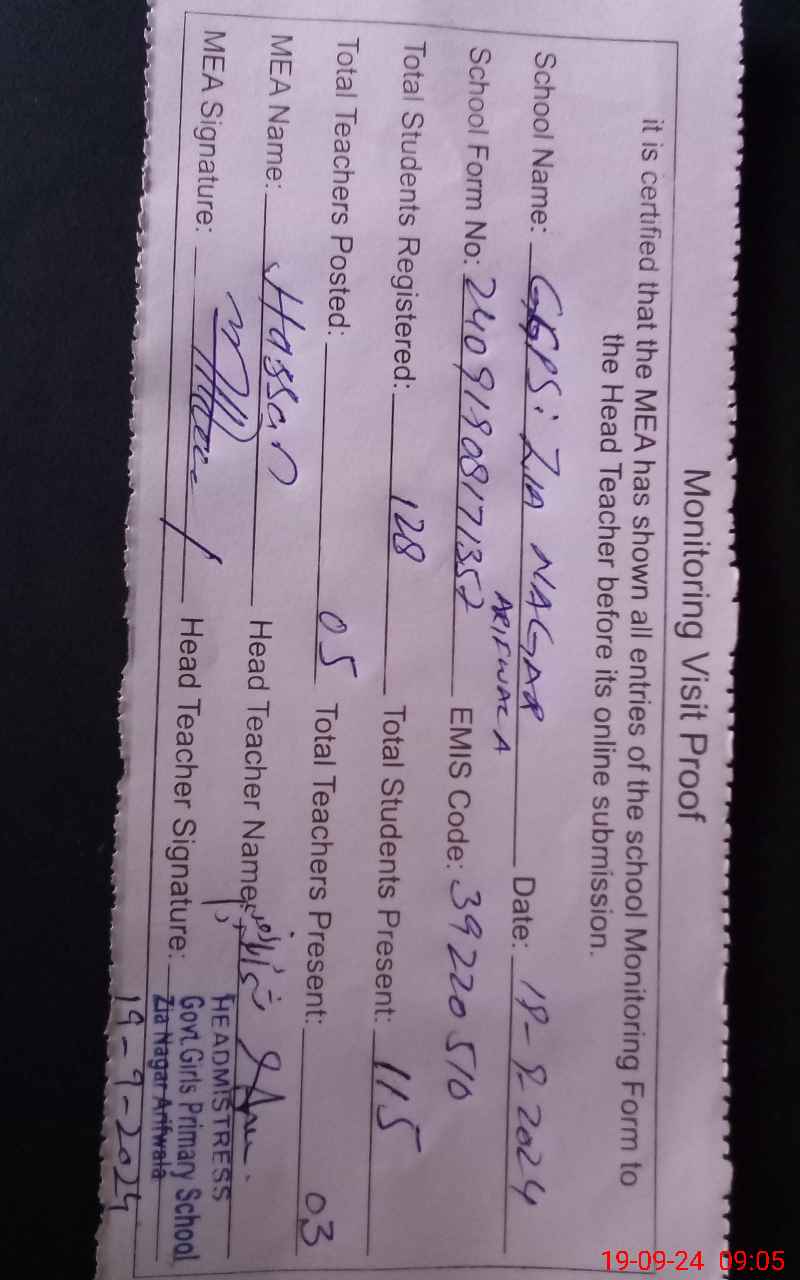 Monitoring Visit Proof
it is certified that the MEA has shown all entries of the school Monitoring Form to
the Head Teacher before its online submission.
School Name: GGPS: ZIA NAGAR Date: 19-9-2024
ARIFWALA
School Form No: 24091908171352 EMIS Code: 39220510
Total Students Registered: 128 Total Students Present: 115
Total Teachers Posted: 05 Total Teachers Present: 03
MEA Name: Hassan Head Teacher Name:
MEA Signature: Head Teacher Signature:
HEADMISTRESS
Govt. Girls Primary School
Zia Nagar Arifwala
19-9-2024
19-09-24 09:05